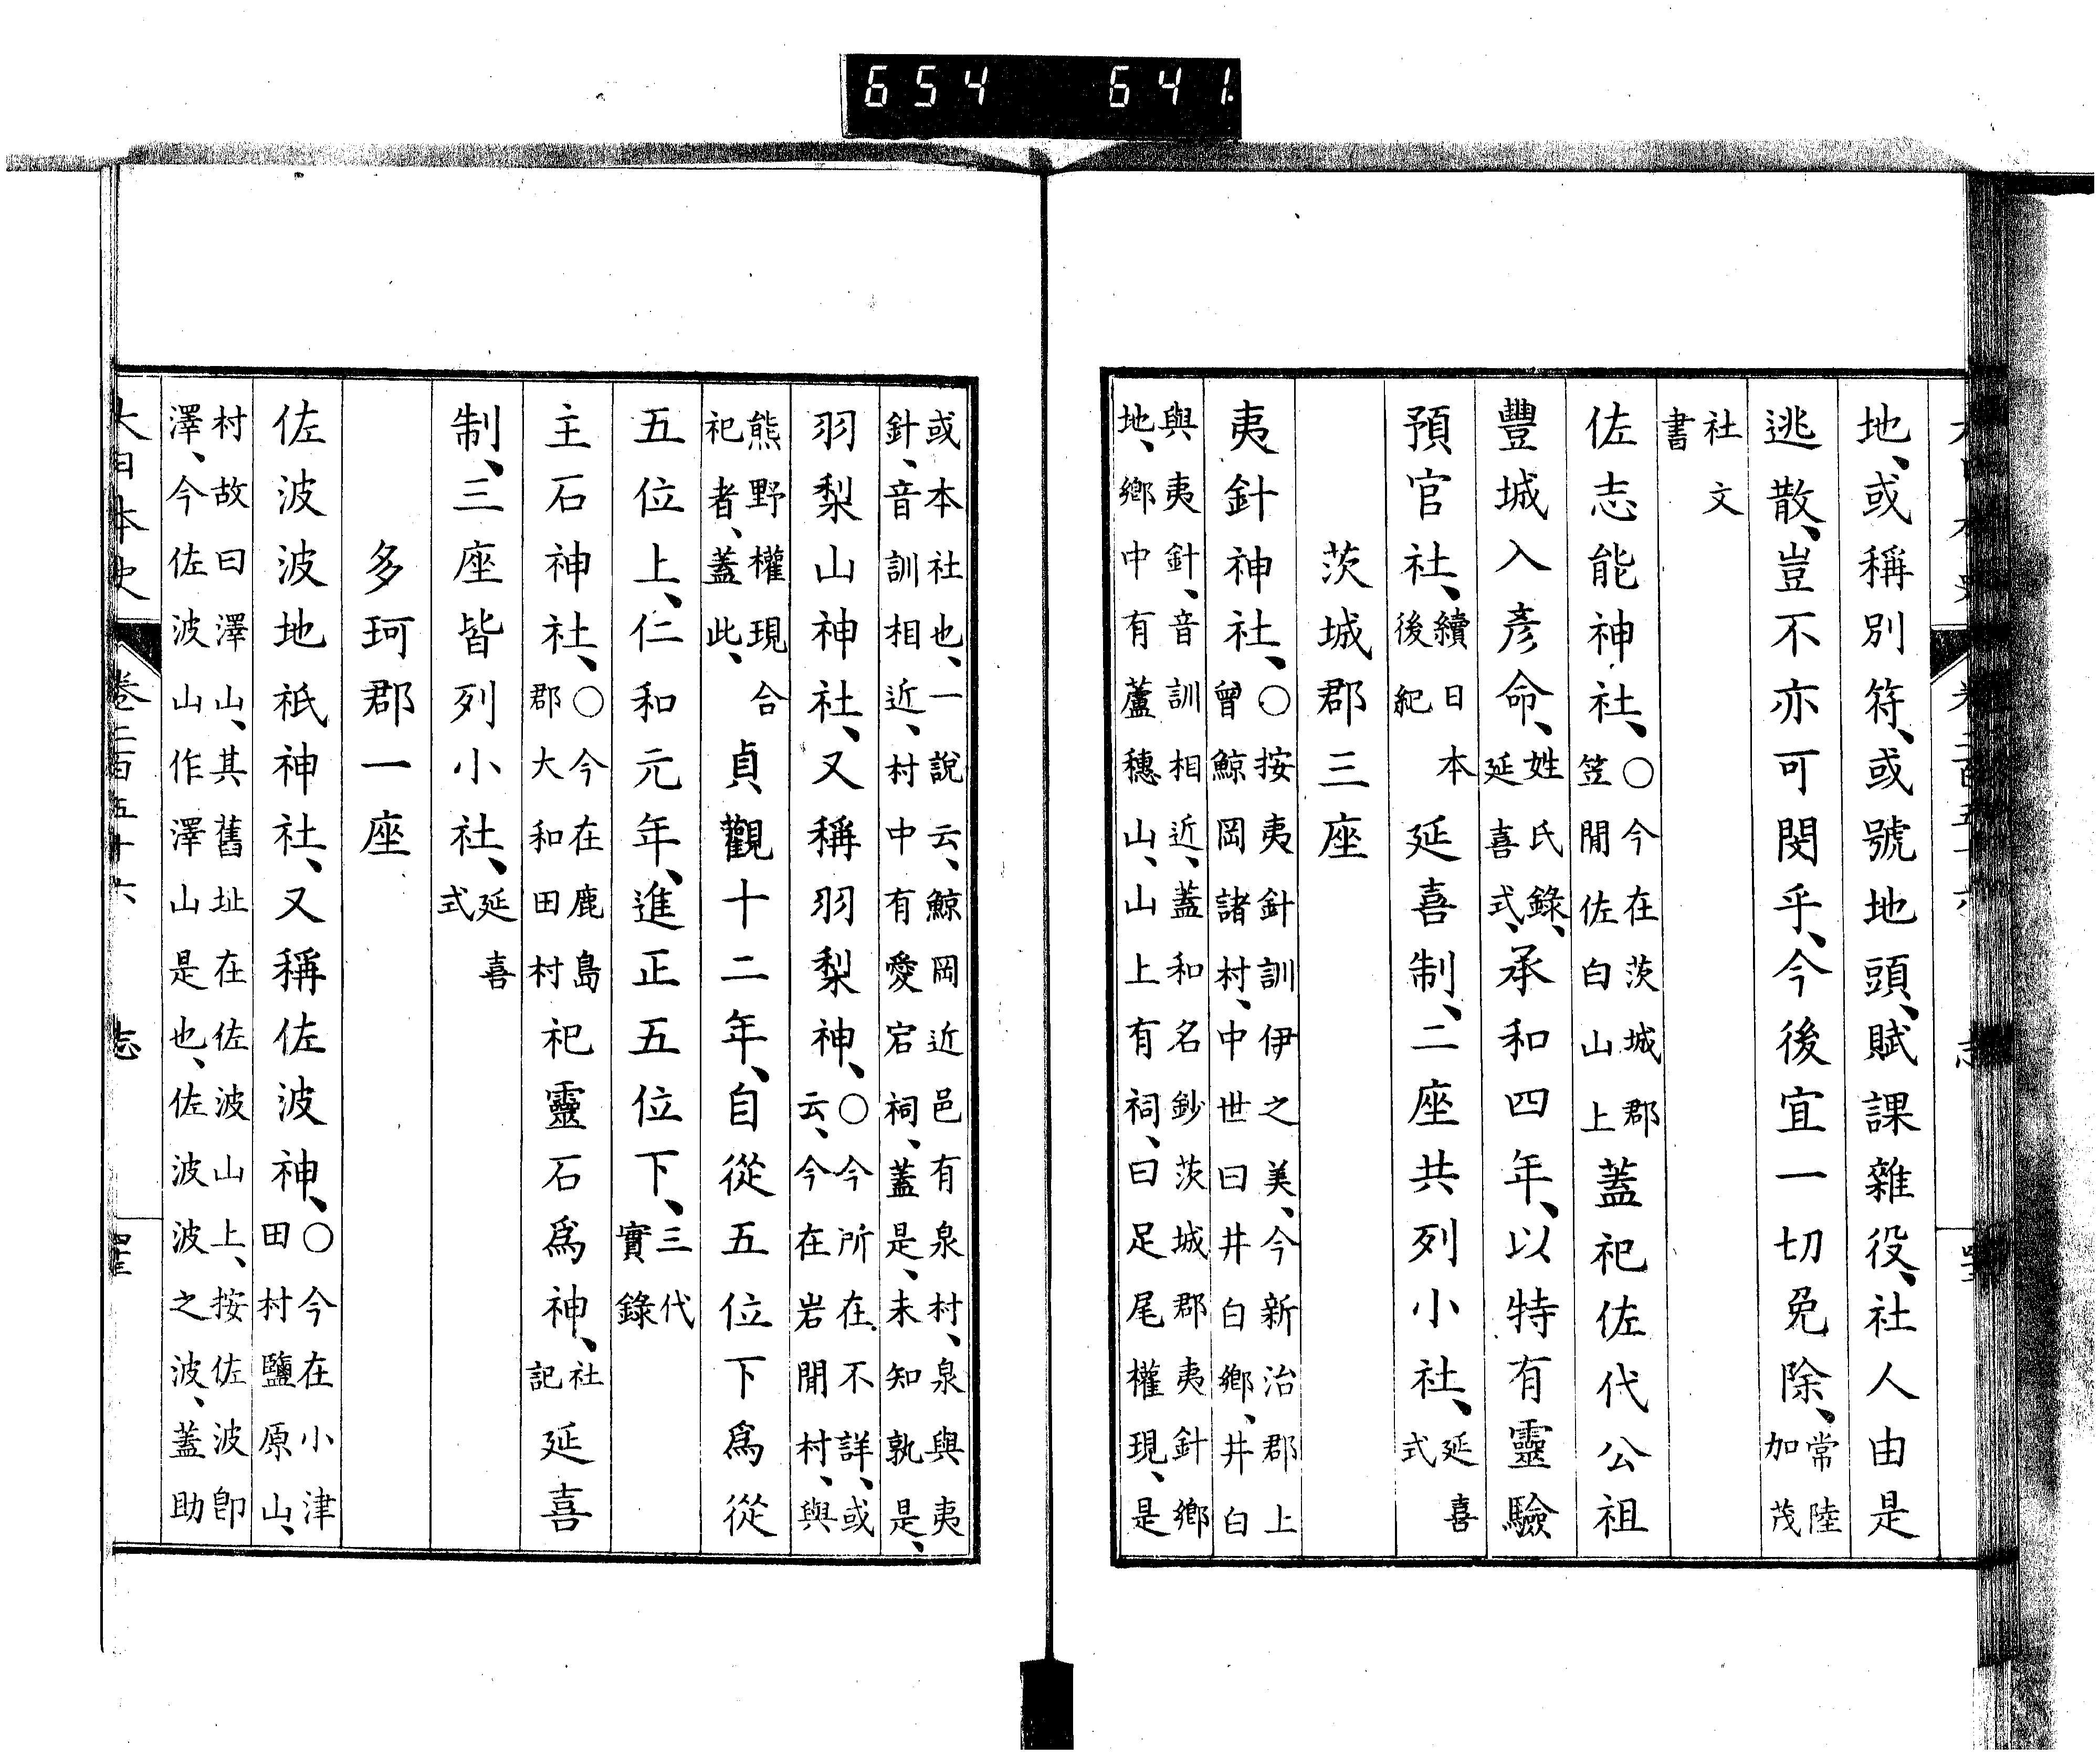 654 641.
地、或稱別符、或號地頭、賦課雜役、社人由是
逃散、豈不亦可閔乎、今後宜一切免除、常陸加茂
社文書
佐志能神社、○今在茨城郡笠間佐白山上蓋祀佐代公祖
豐城入彥命、姓氏錄、延喜式、承和四年、以特有靈驗
預官社、續日本後紀延喜制、二座共列小社、延喜式
茨城郡三座
夷針神社、○按夷針訓伊之美、今新治郡上曾鯨岡諸村、中世曰井白鄉、井白
與夷針、音訓相近、蓋和名鈔茨城郡夷針鄉地、鄉中有蘆穗山、山上有祠、曰足尾權現、是
或本社也、一說云、鯨岡近邑有泉村、泉與夷針、音訓相近、村中有愛宕祠、蓋是、未知孰是、
羽梨山神社、又稱羽梨神、○今所在不詳、或云、今在岩間村、與
熊野權現合祀者、蓋此、貞觀十二年、自從五位下爲從
五位上、仁和元年、進正五位下、三代實錄
主石神社、○今在鹿島郡大和田村祀靈石爲神、社記延喜
制、三座皆列小社、延喜式
多珂郡一座
佐波波地祇神社、又稱佐波神、○今在小津田村鹽原山、
村故曰澤山、其舊址在佐波山上、按佐波卽澤、今佐波山作澤山是也、佐波波之波、蓋助
大日本史 卷二百五十六 志